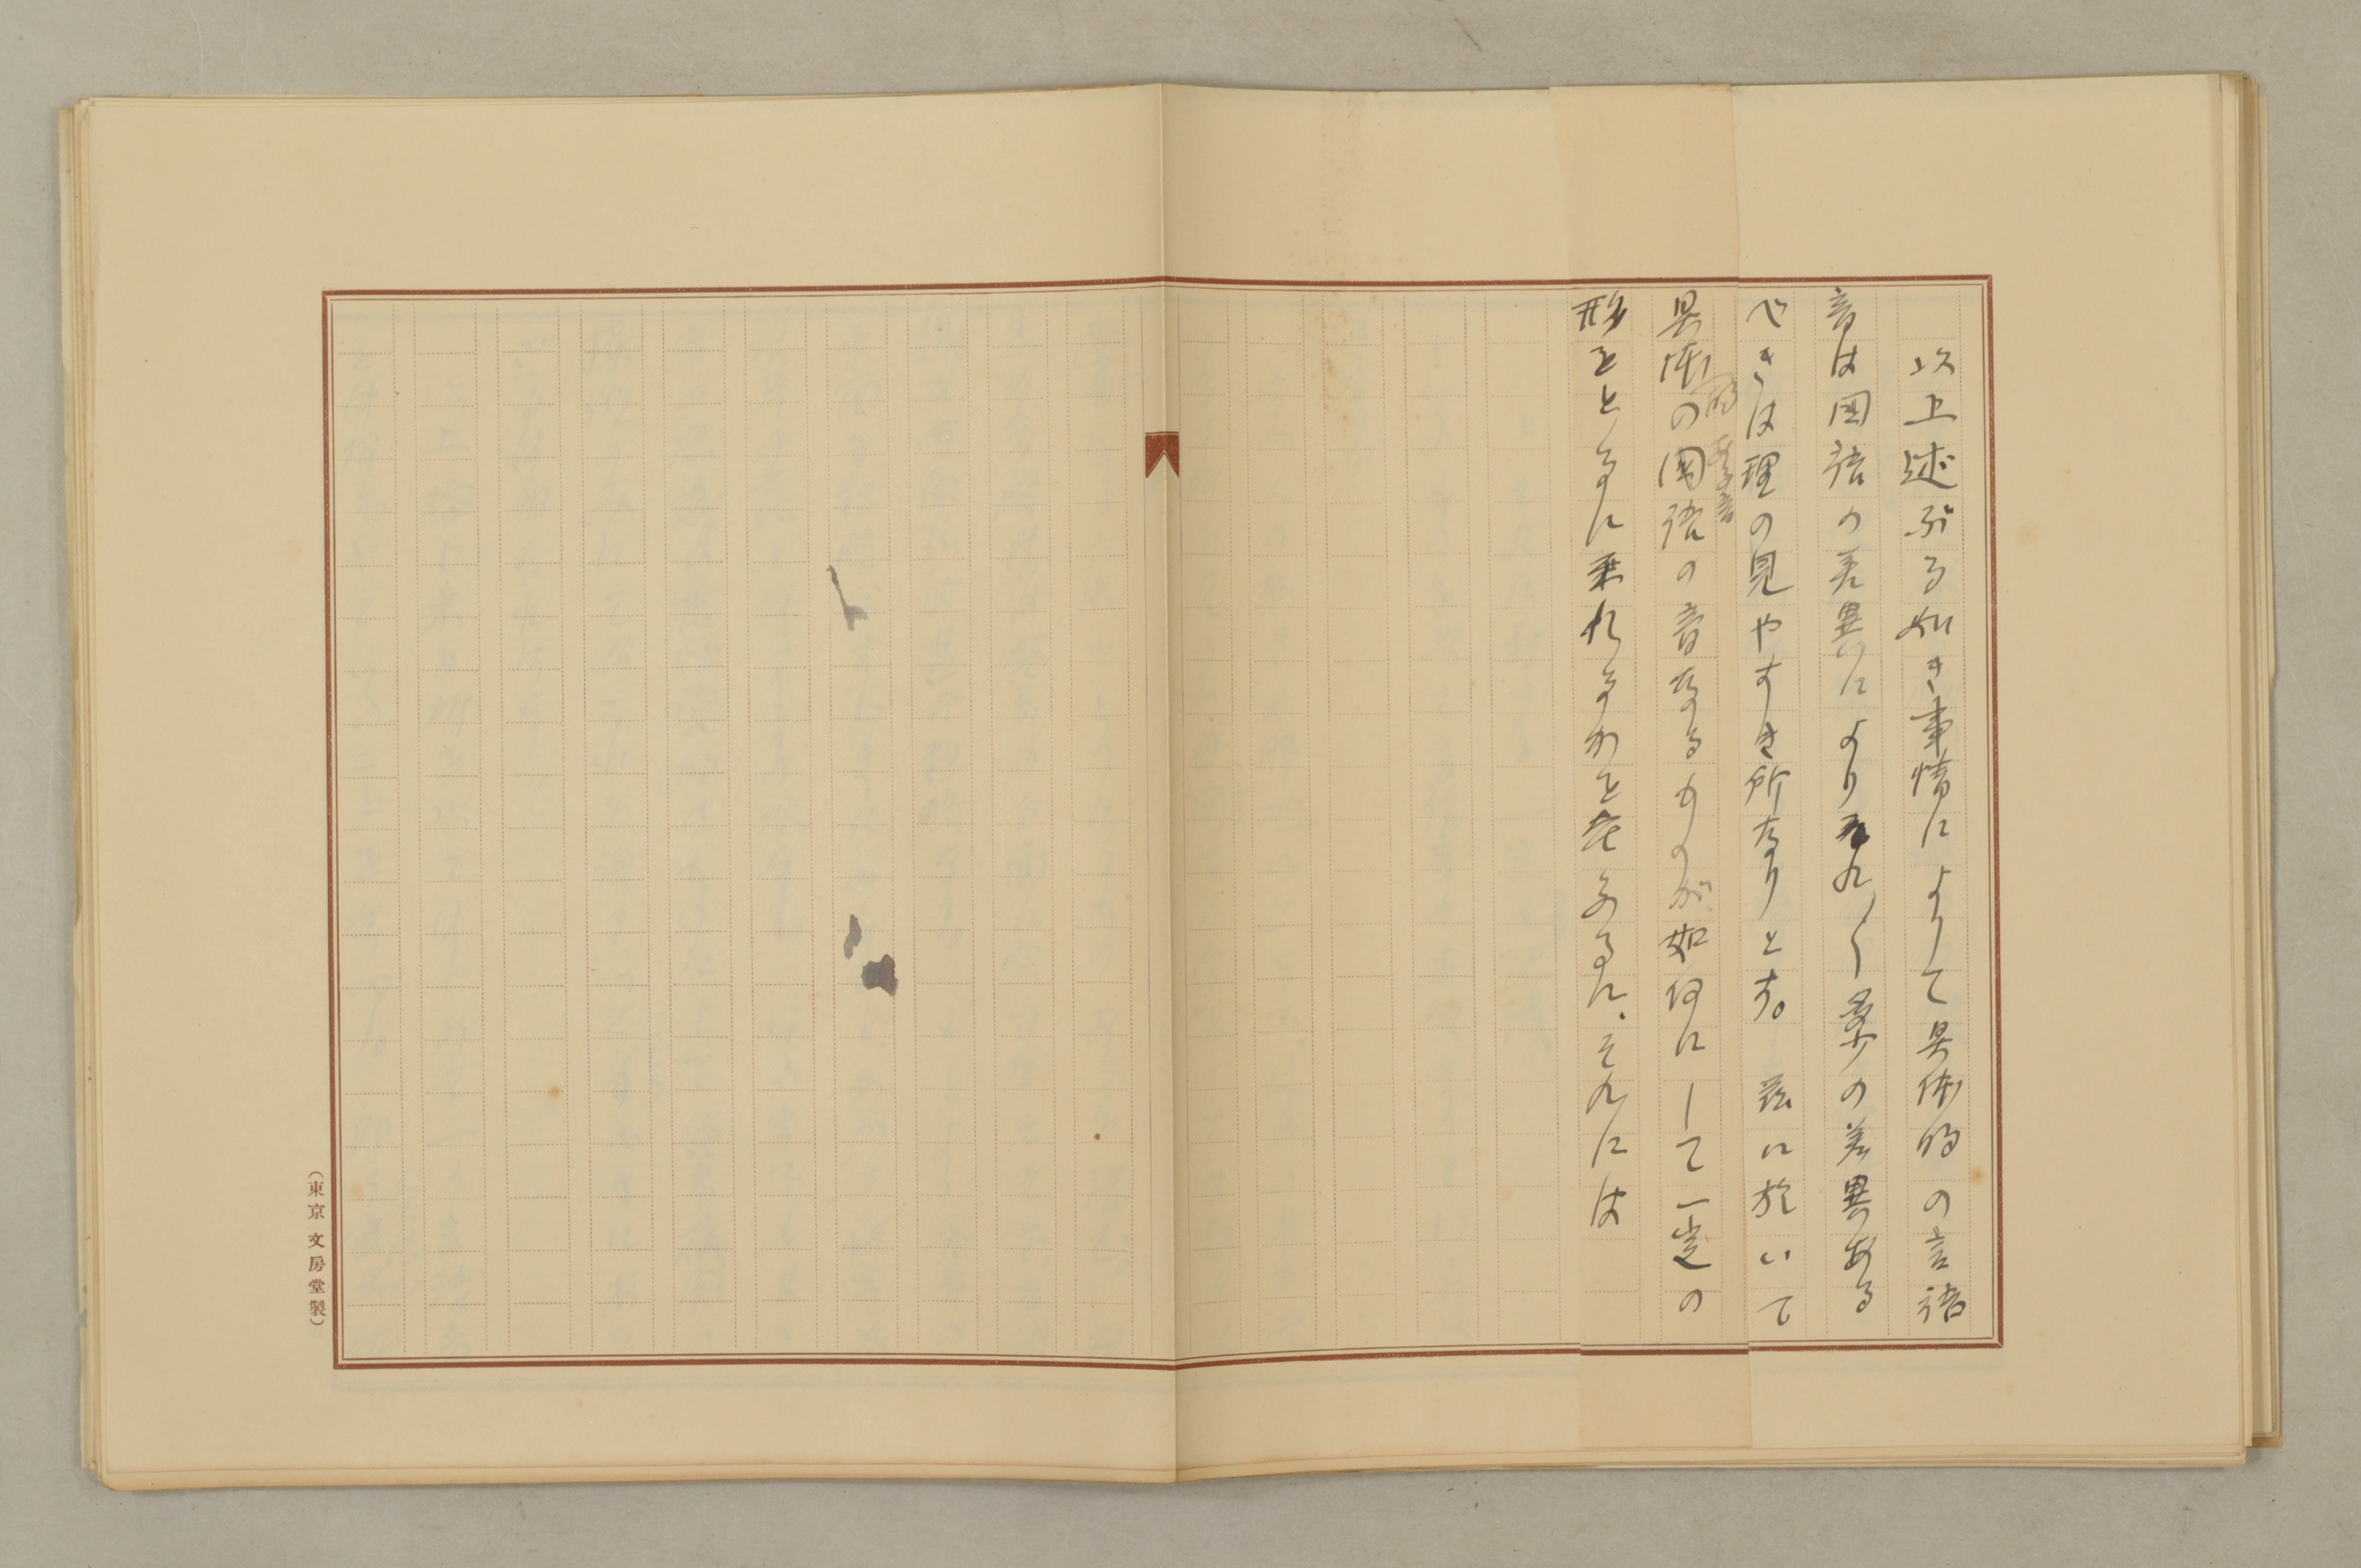 以上述ぶる如き事情によりて具体的の言語
音は国語の差異によりそれ〳〵多少の差異ある
べきは理の見やすき所なりとす。茲に於いて
具体的の国語の音なるものが如何にして一定の
形をとるに至れるかを考ふるに、それには
(東京文房堂製)